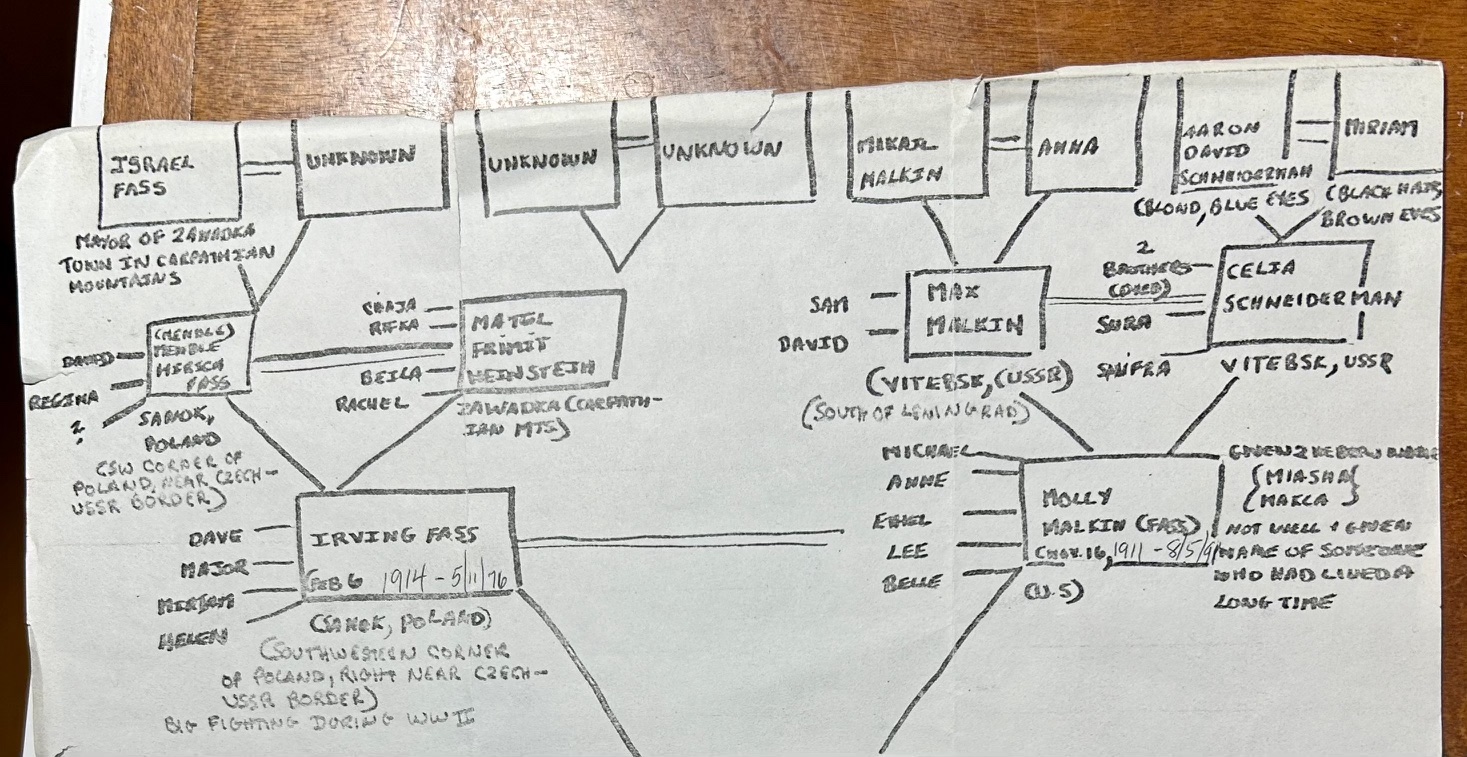 ISRAEL
FASS
UNKNOWN
UNKNOWN
UNKNOWN
MALKIN
ANNA
AARON
DAVID
SCHNEIDERMAN
MIRIAM
(BLOND, BLUE EYES
(BLACK HAIR,
BROWN EYES
MAYOR OF ZAWADKA
TOWN IN CARPATHIAN
MOUNTAINS
(MENDLE)
MENDLE
HIRSCH
FASS
DAVID
REGINA
?
SANOK,
POLAND
(SW CORNER OF
POLAND, NEAR CZECH-
USSR BORDER)
CHAJA
RIFKA
BEILA
RACHEL
FRIMIT
WEINSTEIN
ZAWADKA (CARPATH-
IAN MTS)
SAM
DAVID
MAX
MALKIN
(VITEBSK, (USSR)
(SOUTH OF LENINGRAD)
2
BROTHERS
(DIED)
SURA
SHIFRA
CELIA
SCHNEIDERMAN
VITEBSK, USSR
DAVE
MAJOR
MIRIAM
HELEN
IRVING FASS
(FEB 6 1914 - 5/11/76
(SANOK, POLAND)
(SOUTHWESTERN CORNER
OF POLAND, RIGHT NEAR CZECH-
USSR BORDER)
BIG FIGHTING DURING WW II
MICHAEL
ANNE
ETHEL
LEE
BELLE
MOLLY
MALKIN (FASS)
(NOV. 16, 1911 - 8/5/91
(U.S)
GIVEN 2 HEBREW NAMES
{MIASHA}
{MAKLA}
NOT WELL + GIVEN
NAME OF SOMEONE
WHO HAD LIVED A
LONG TIME